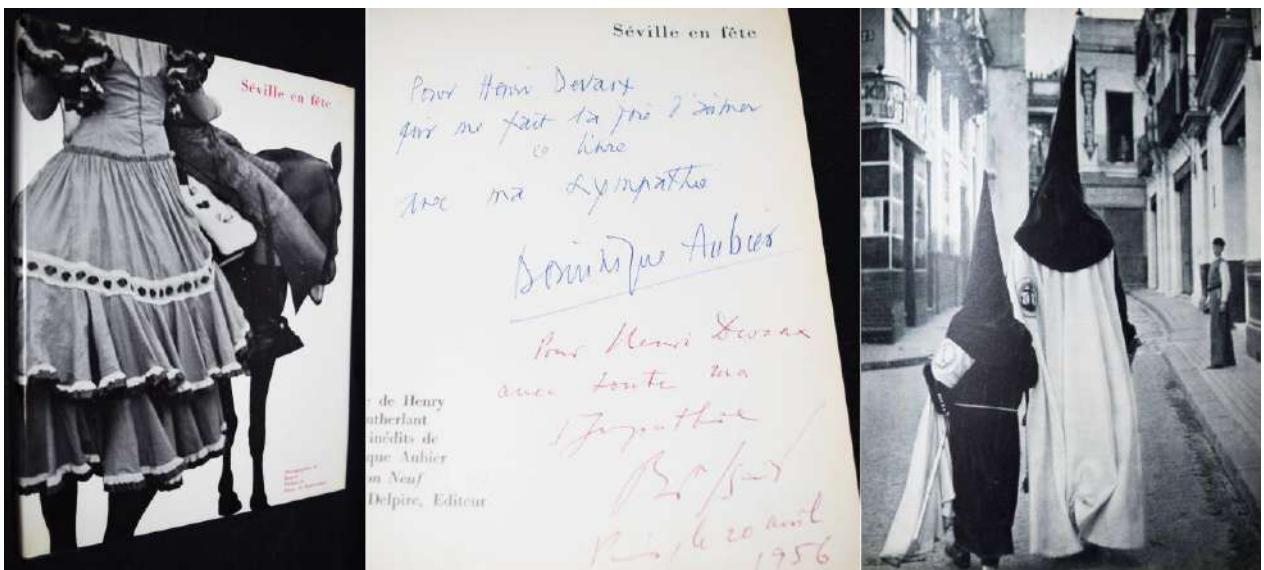 Séville en fête
Séville en fête
Pour Henri Devaux
qui me fait la joie d'aimer
ce livre
avec ma sympathie
Dominique Aubier
Pour Henri Devaux
avec toute ma
sympathie
Paris, le 20 avril
1956
de Henry
ntherlant
inédits de
que Aubier
on Neuf
Delpire, Editeur